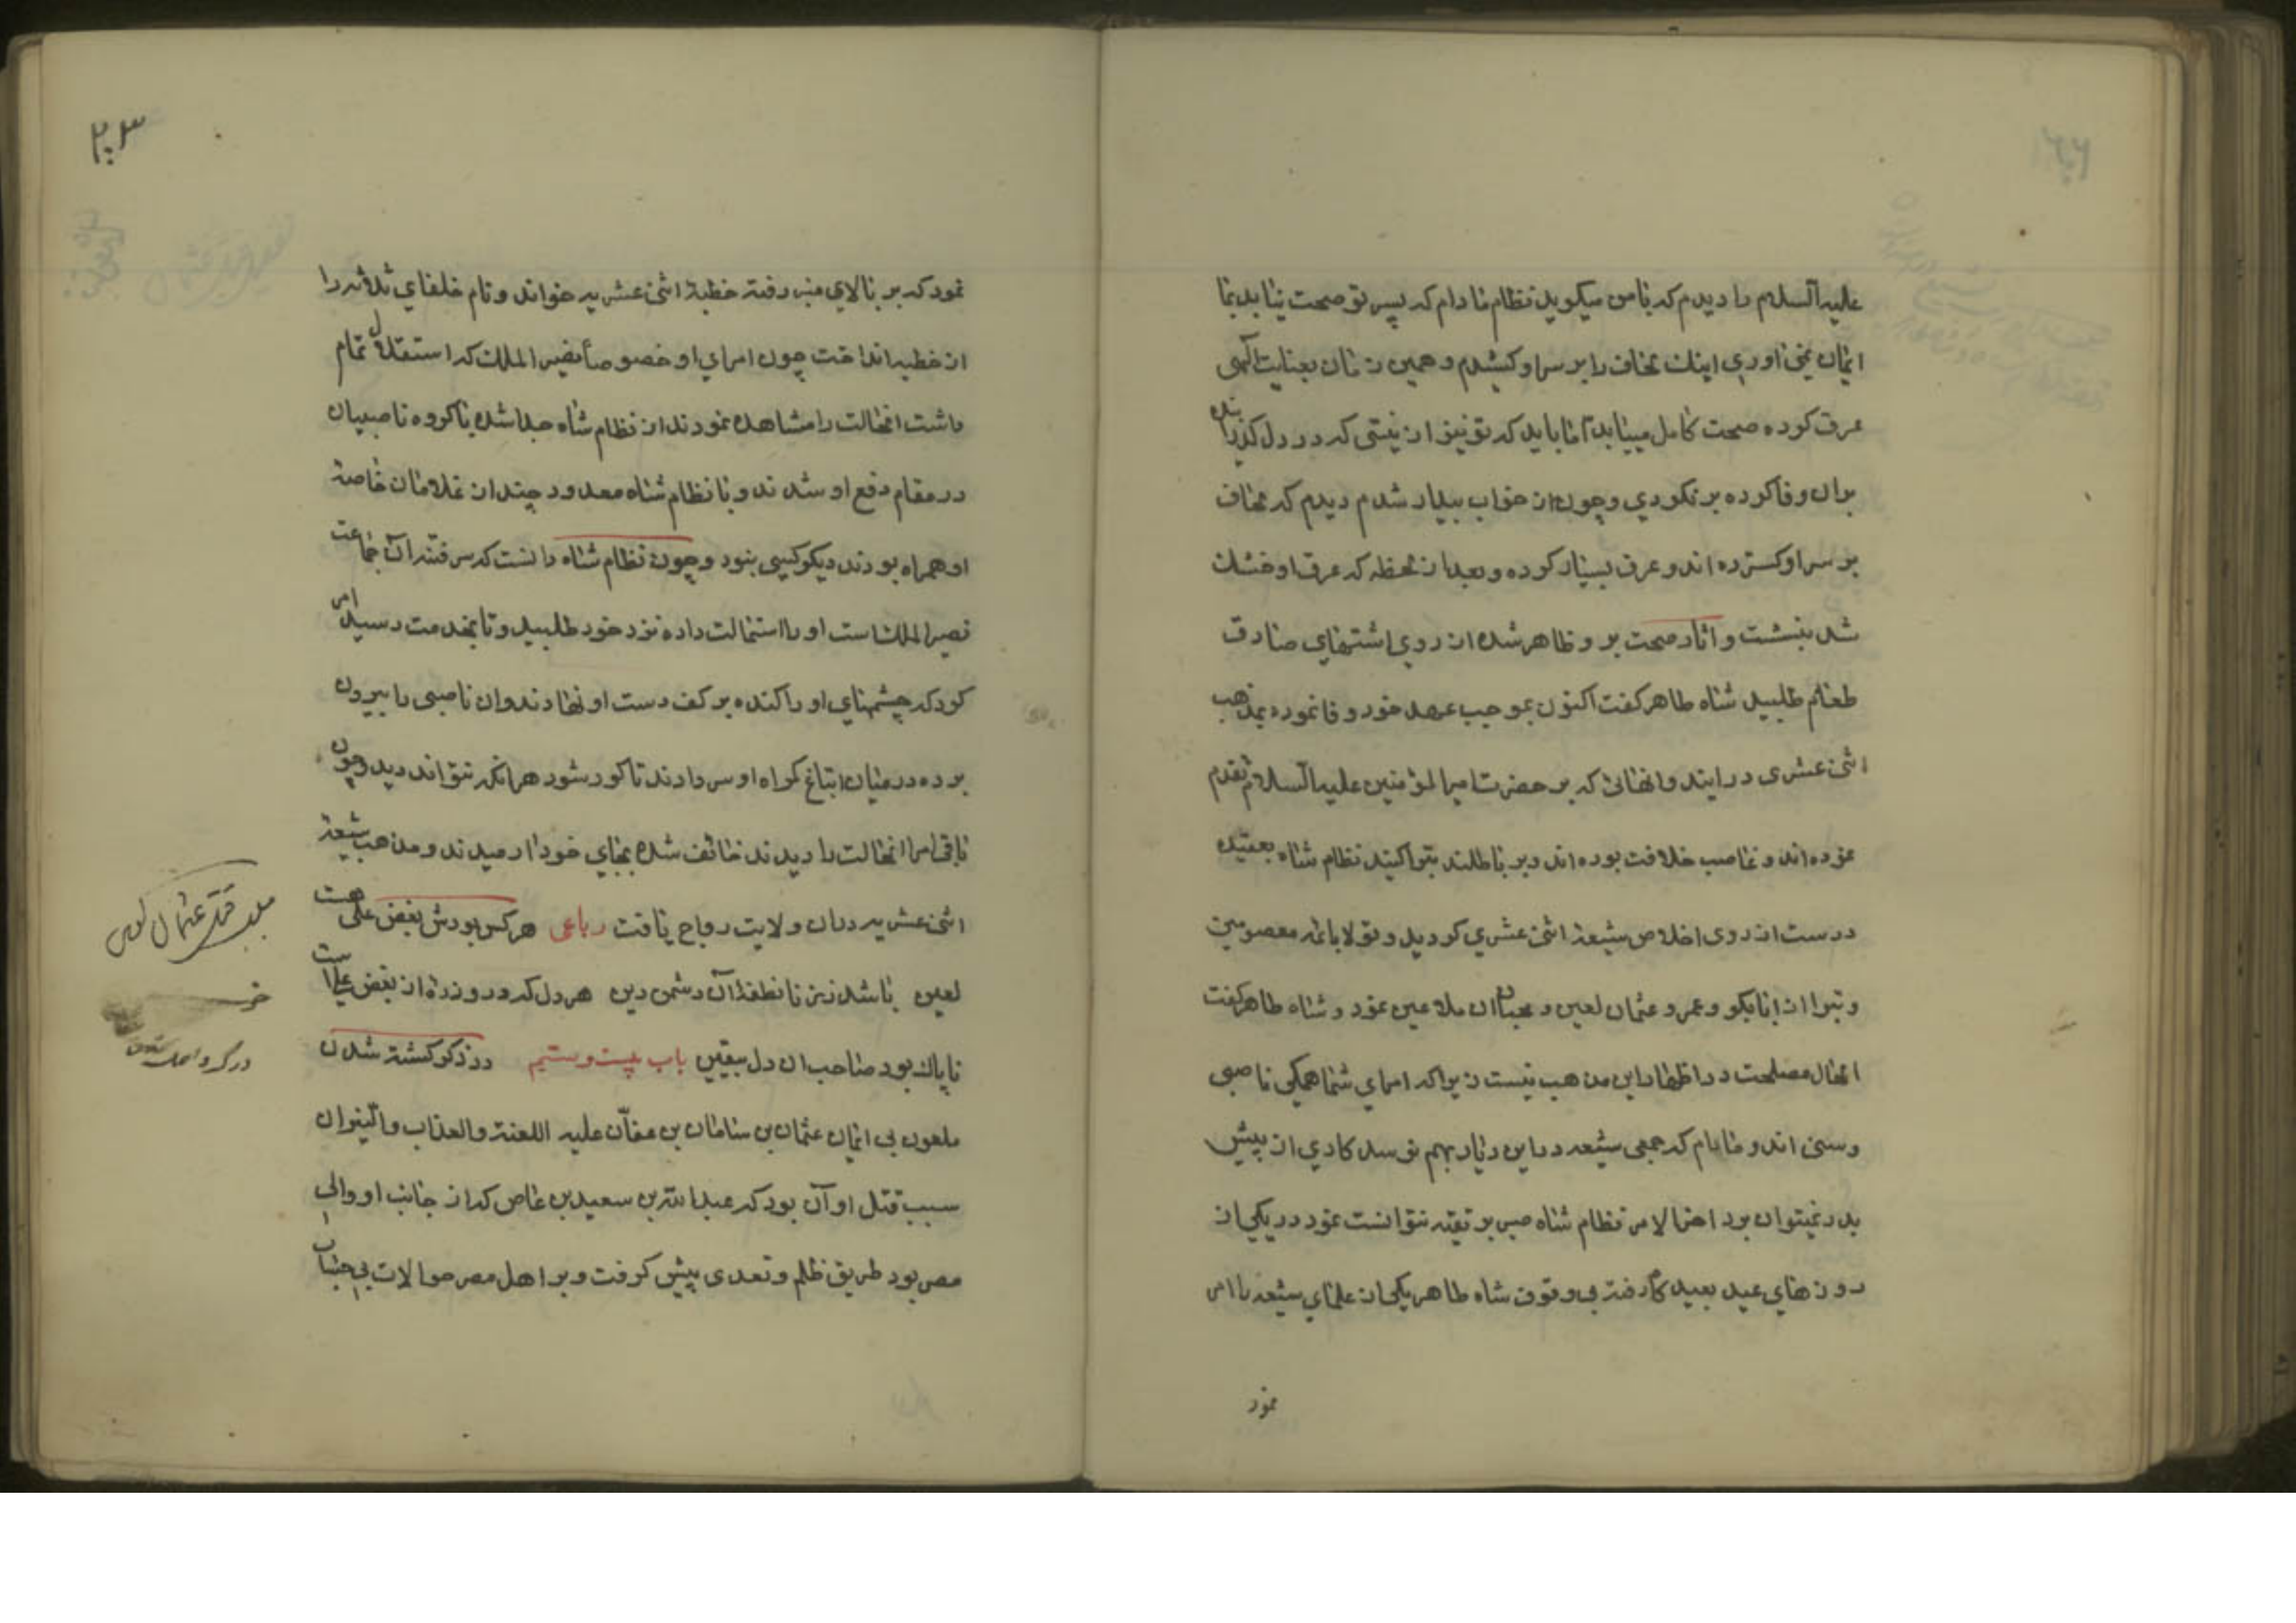 علیه السلام را دیدم که با من میکوید نظام مادام که پسر تو صحت نیابد بما
ایمان نمی اوری اینک لحاف را بر سر او کشیدم و همین زمان بعنایت الهی
عرق کرده صحت کامل مییابد اما باید که تو نیز از نیتی که در دل کذرانیده
بران وفا کرده بر نکردی و چون از خواب بیدار شدم دیدم که لحاف
بر سر او کسترده اند و عرق بسیار کرده و بعد از لحظه که عرق او خشک
شد بنشست و اثار صحت بر و ظاهر شده از روی اشتهای صادق
طعام طلبید شاه طاهر کفت اکنون بموجب عهد خود وفا نموده بمذهب
اثنی عشری در ایند و انهائی که بر حضرت امیر المؤمنین علیه السلام تقدم
نموده اند و غاصب خلافت بوده اند و بر باطلند تبرا کنید نظام شاه بعقیده
درست از روی اخلاص شیعهٔ اثنی عشری کردید و تولا بائمه معصومین
و تبرا از ابابکر و عمر و عثمان لعین و محبان ان ملاعین نمود و شاه طاهر کفت
الحال مصلحت در اظهار این مذهب نیست زیرا که امرای شما همکی ناصبی
و سنی اند و مادام که جمعی شیعه در این دیار بهم نرسد کاری از پیش
بدر نمیتوان برد احتمالا مر نظام شاه صبر بر تقیه نتوانست نمود در یکی از
روزهای عید بعید کاه رفته بی وقوف شاه طاهر یکی از علمای شیعه را امر
نمود
۲۰۳
نمود که بر بالای منبر رفته خطبهٔ اثنی عشریه خواند و نام خلفای ثلاثه را
از خطبه انداخت چون امرای او خصوصاً نصیر الملک که استقلال تمام
داشت انحالت را مشاهده نمودند از نظام شاه جدا شده با کروه ناصبیان
در مقام دفع او شدند و با نظام شاه معدود چند از غلامان خاصهٔ
او همراه بودند دیکر کسی نبود و چون نظام شاه دانست که سر فتنه آن جماعت
نصیر الملک است او را استمالت داده نزد خود طلبید و تا بخدمت رسید امر
کرد که چشمهای او را کنده بر کف دست او نهادند و ان ناصبی را بیرون
برده در میان اتباع کمراه او سر دادند تا کور شود هرانکه نتواند دید و چون
باقی امرا انحالت را دیدند خائف شده بجای خود ارمیدند و مذهب شیعهٔ
اثنی عشریه دران ولایت رواج یافت رباعی هر کس بودش بغض علی هست
لعین باشد ز زنا نطفهٔ آن دشمن دین هر دل که درو ذرهٔ از بغض علی است
ناپاک بود صاحب ان دل بیقین باب بیست و ستیم در ذکر کشته شدن
ملعون بی ایمان عثمان بن سامان بن عفان علیه اللعنة والعذاب والنیران
سبب قتل او آن بود که عبدالله بن سعید بن عاص که از جانب او والی
مصر بود طریق ظلم و تعدی پیش کرفت و بر اهل مصر حوالات بی حساب